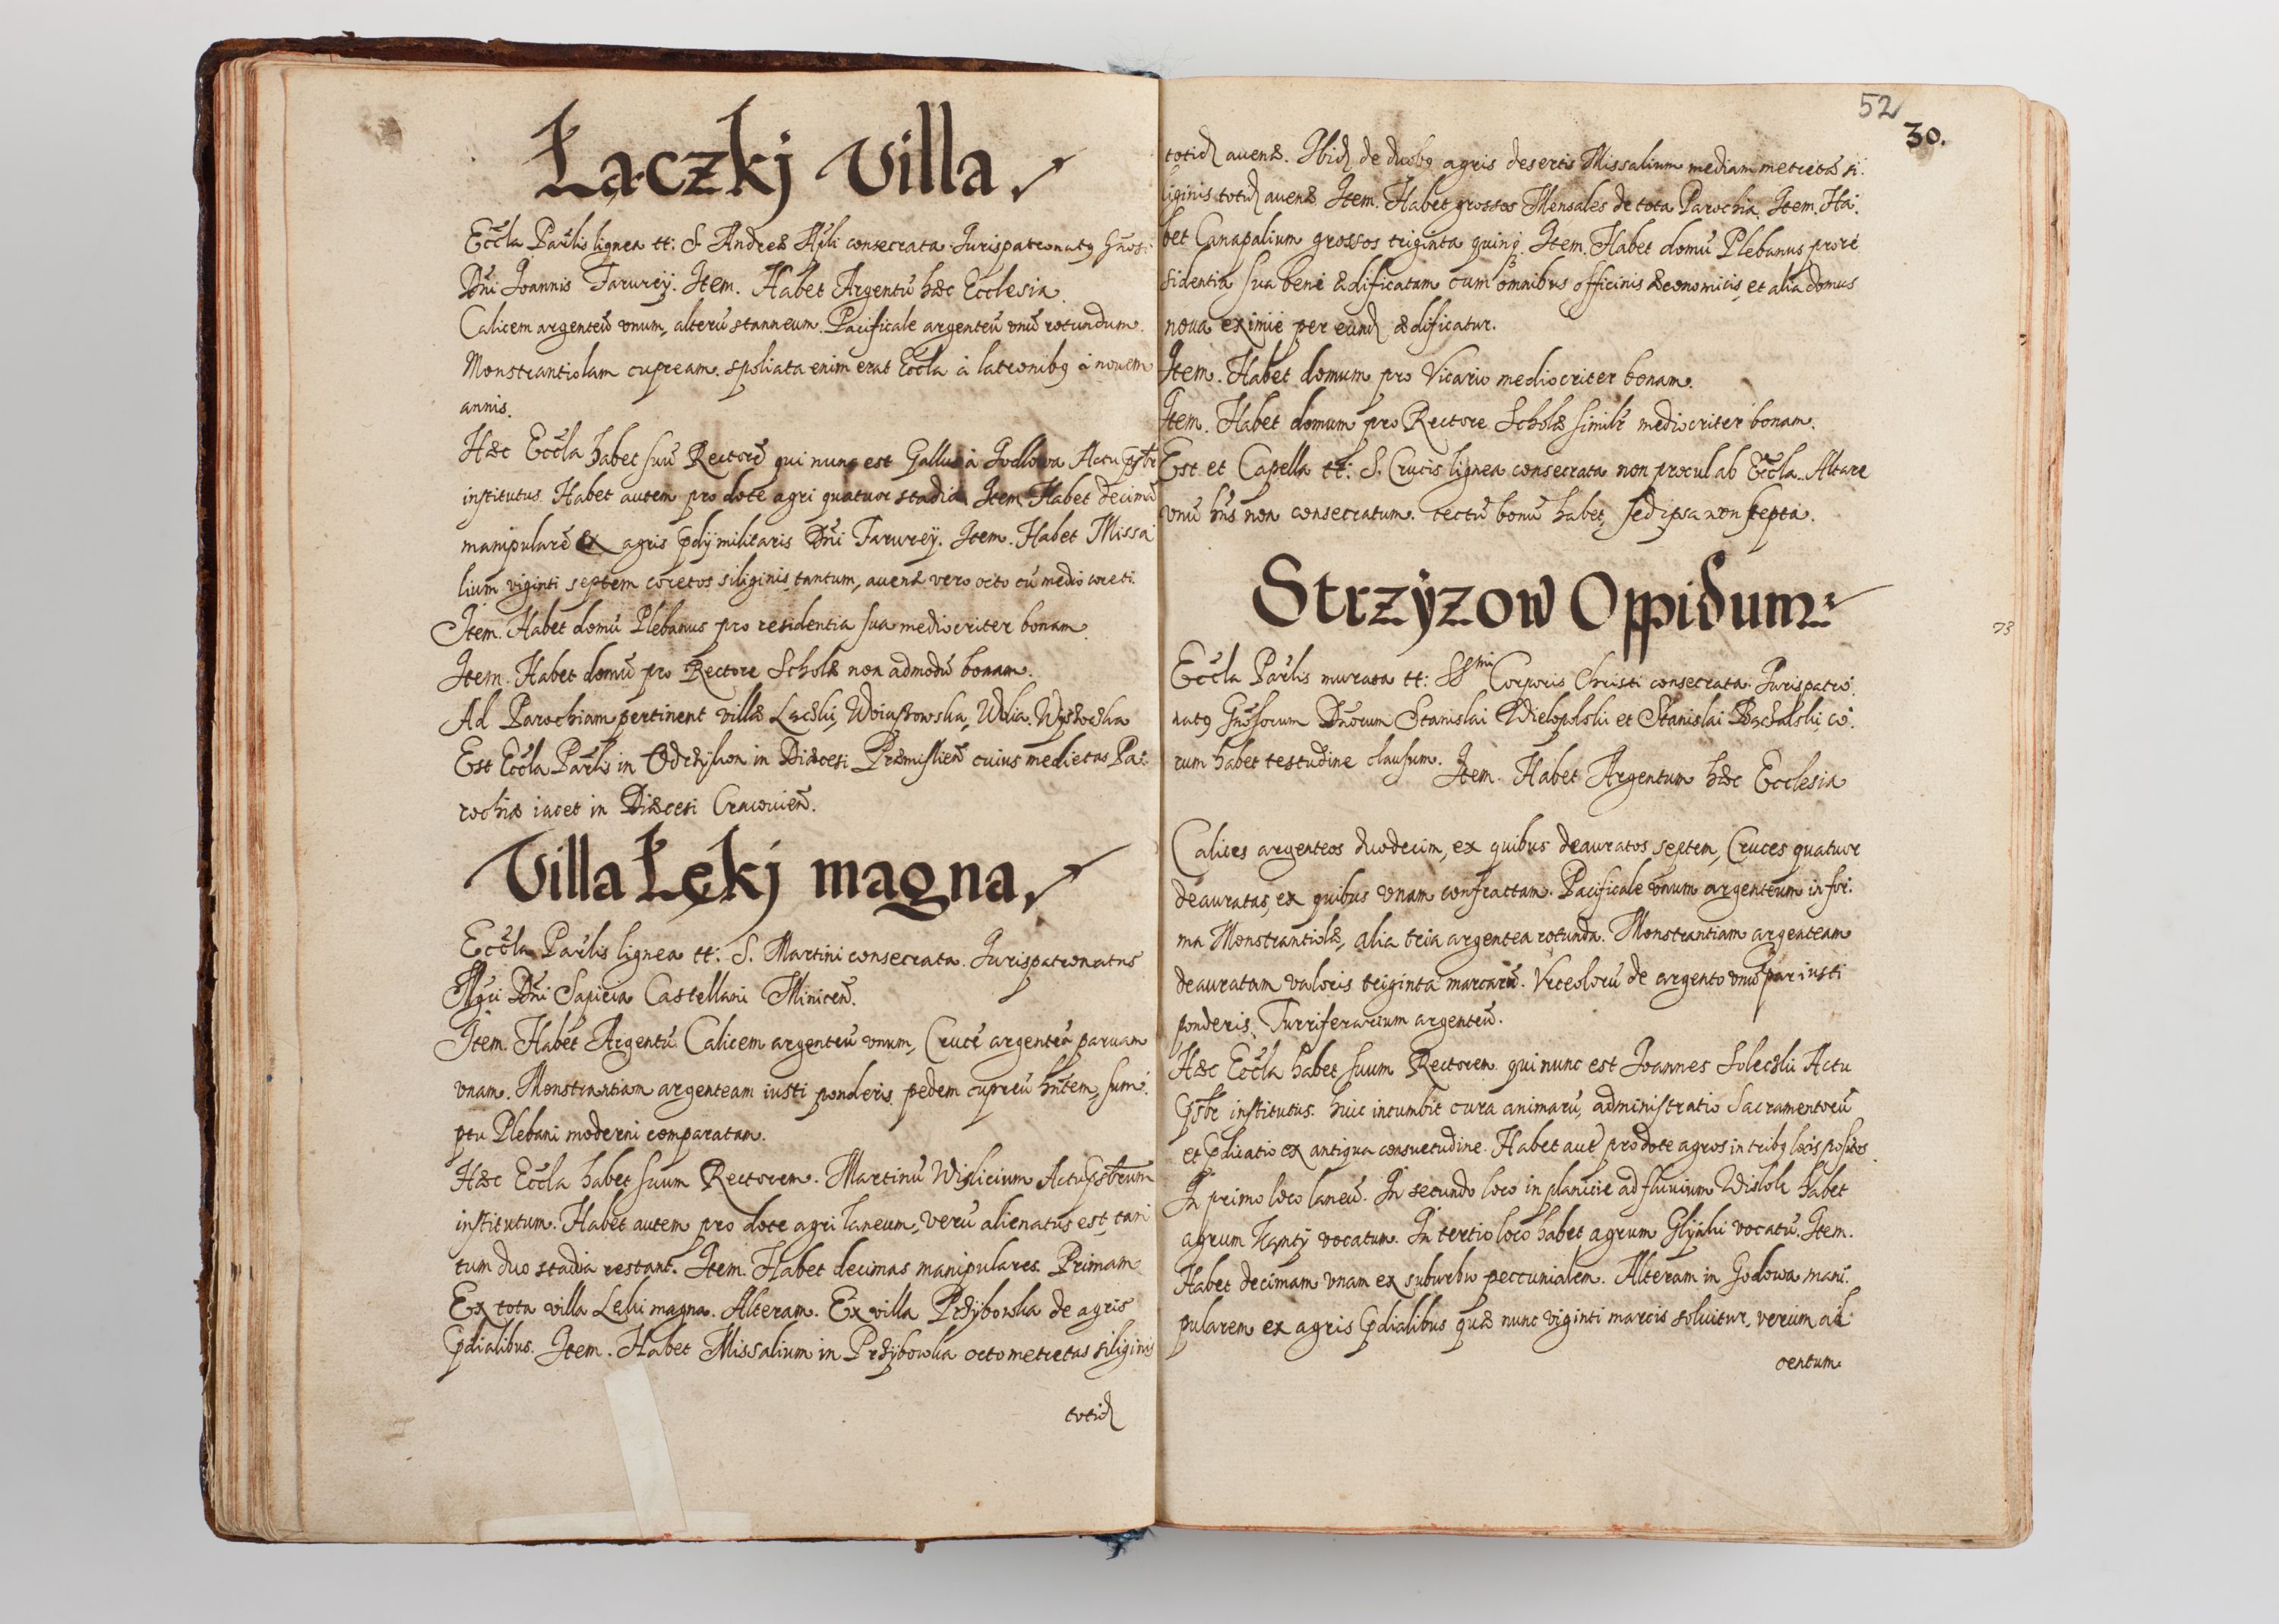 Łączkj Villa
Eccla Parlis lignea tt: S. Andreæ Apli consecrata Jurispatronatq Gnosi
Dni Joannis Farurey. Item. Habet Argentū hæc Ecclesia.
Calicem argenteū vnum, alterū stanneum. Pacificale argenteū vnū rotundum.
Monstrantiolam cupream. spoliata enim erat Eccla à latronibq à novem
annis.
Hæc Eccla habet suū Rectorē qui nunc est Gallus à Jodlowa Actu pbr
institutus. Habet autem pro dote agri quatuor stadia Item Habet decimā
manipularē ex agris pdij militaris Dni Farurey. Item. Habet Missa
lium viginti septem coretos siliginis tantum, auenæ vero octo cū medio coreti.
Item. Habet domū Plebanus pro residentia sua mediocriter bonam.
Item. Habet domū pro Rectore Scholæ non admodū bonam.
Ad Parochiam pertinent villæ Lączki, Woiaszowska, Wolia.
Est Eccla Parlis in Odrzykon in Diæcesi Præmislień cuius medietas Pa:
rochiæ iacet in Diæcesi Cracovień.
Villa Łękj magna
Eccla Parlis lignea tt: S. Martini consecrata. Jurispatronatus
Mgci Dni Sapieia Castellani Minicen̄.
Item. Habet Argentū Calicem argenteū vnum, Crucē argenteā paruam
vnam. Monstrantiam argenteam iusti ponderis pedem cupreū hntem, sum:
ptu Plebani moderni comparatam.
Hæc Eccla habet suum Rectorem. Martinū Wislicium Actu psbrum
institutum. Habet autem pro dote agri laneum, verū alienatus est, tan
tum duo stadia restant. Item. Habet decimas manipulares. Primam
Ex tota villa Lęki magna. Alteram. Ex villa Przybowka de agris
pdialibus. Item. Habet Missalium in Przybowka octo metretas siliginis
totid
52
30.
totid auenæ. Ibid de duobq agris desertis Missalium mediam metretā si:
liginis totid auenæ Item. Habet grossos Mensales de tota Parochia. Item. Ha:
bet Canapalium grossos triginta quinq. Item. Habet domū Plebanus pro re
sidentia sua benè ædificatam cum omnibus officinis æconomicis, et alia domus
noua eximiè per eund ædificatur.
Item. Habet domum pro Vicario mediocriter bonam.
Item. Habet domum pro Rectore Scholæ similr mediocriter bonam.
Est et Capella tt: S. Crucis lignea consecrata non procul ab Eccla. Altare
vnū hns non consecratum. tectū bonū habet, sed ipsa non septa.
Strzyzow Oppidum
73
Eccla Parlis murata tt: SSmi Corporis Christi consecrata. Jurispatro:
natq Gnosorum Dnorum Stanislai Wielopolski et Stanislai co:
rum habet testudine clausum. Item. Habet Argentum hæc Ecclesia
Calices argenteos duodecim, ex quibus deauratos septem, Cruces quatuor
deauratas, ex quibus vnam confractam. Pacificale vnum argenteum in for:
ma Monstrantiolæ, alia tria argentea rotunda. Monstrantiam argenteam
deauratam valoris triginta marcarū. Vrceolorū de argento vnū par iusti
ponderis. Turriferarium argenteū.
Hæc Eccla habet suum Rectorem qui nunc est Joannes Soleczki Actu
psbr institutus. huic incumbit cura animarū, administratio Sacramentorū
et pdicatio ex antiqua consuetudine. Habet aut pro dote agros in tribq locis positos.
In primo loco laneū. In secundo loco in planicie ad fluvium Wislok habet
agrum Kąnty vocatum. In tertio loco habet agrum Glynki vocatū. Item.
Habet decimam vnam ex suburbio peccunialem. Alteram in Godowa mani:
pularem ex agris pdialibus quæ nunc viginti marcis soluitur, verum ad
centum